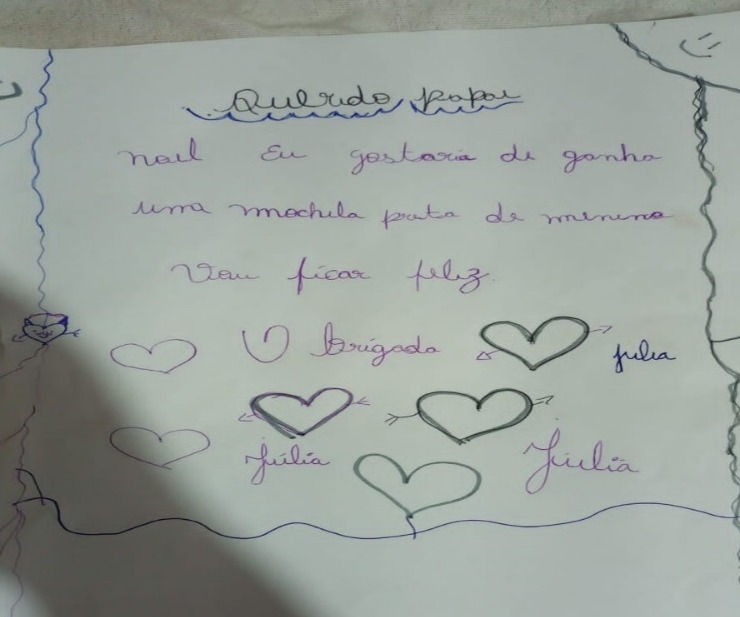 Querido papai
noel Eu gostaria de ganha
uma mochila preta de menino
Vou ficar feliz.
Obrigada julia
Júlia Júlia